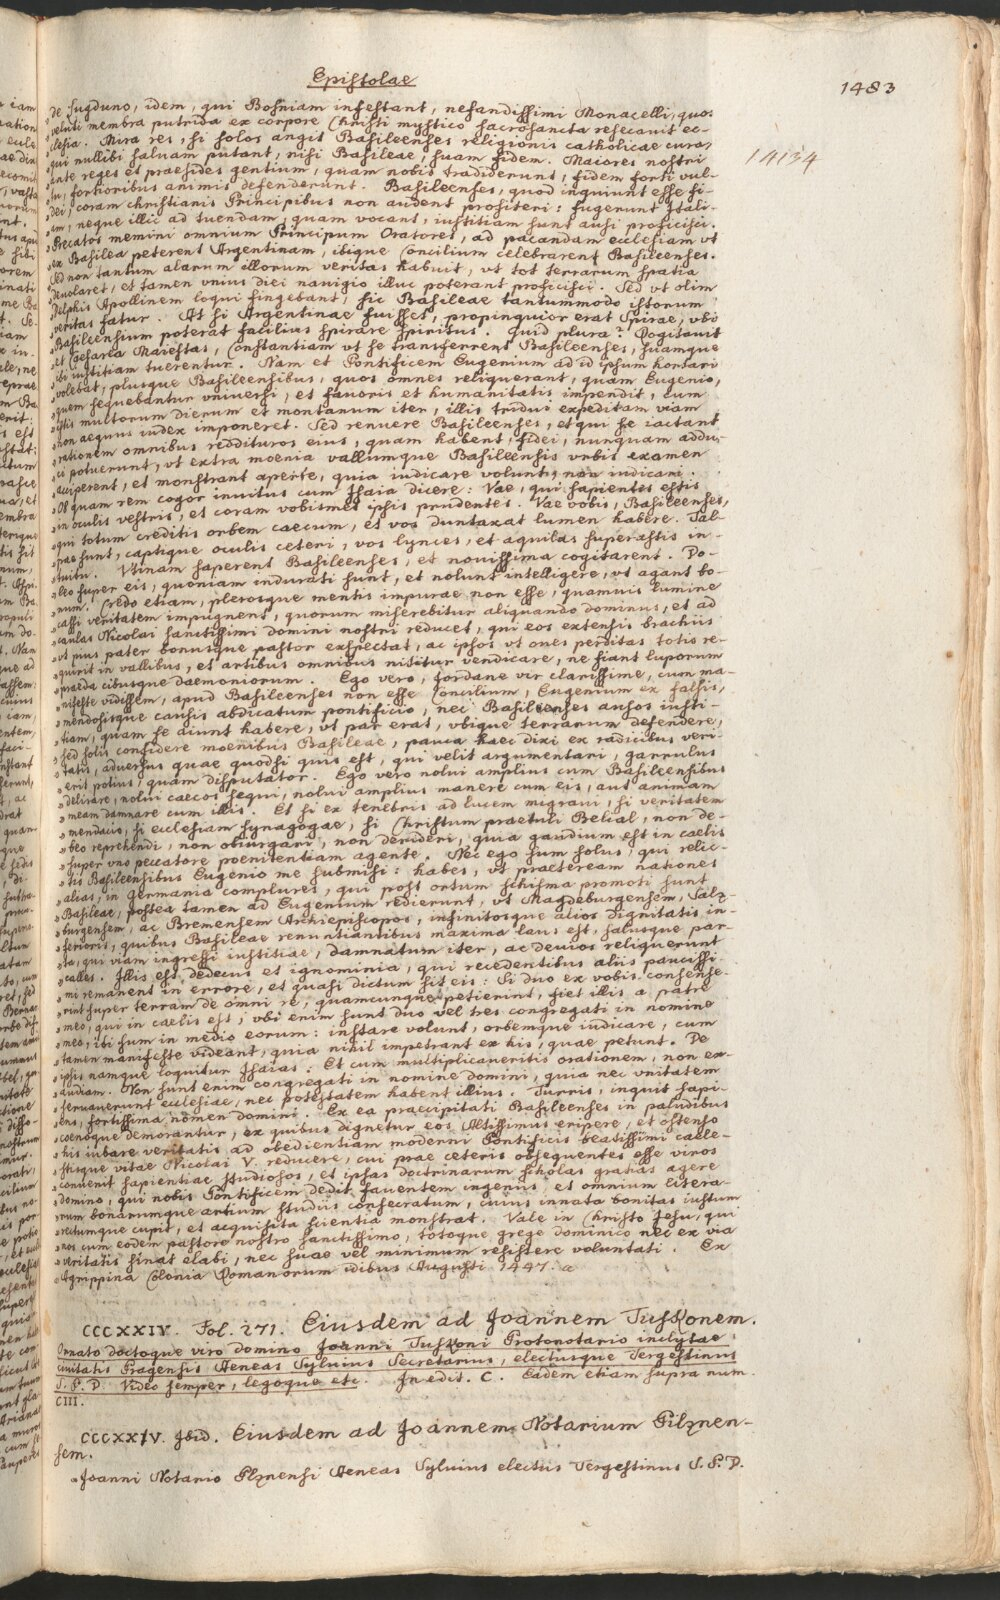 Epistolae
1483
14134
„de Lugduno, idem, qui Bosniam infestant, nefandissimi Monacelli, quos
„veluti membra putrida ex corpore Christi mystico sacrosancta resecavit ec-
„clesia. Mira res, si solos angit Basileenses religionis catholicae cura,
„qui nullibi salvam putant, nisi Basileae, suam fidem. Maiores nostri
„ante reges et praesides gentium, quam nobis tradiderunt, fidem forti vul-
„tu, fortioribus animis defenderunt. Basileenses, quod inquiunt esse fi-
„dei, coram christianis Principibus non audent profiteri: fugerunt Itali-
„am, neque illic ad tuendam, quam vocant, iustitiam sunt ausi proficisci.
„Precatos memini omnium Principum Oratores, ad pacandam ecclesiam vt
„ex Basilea peterent Argentinam, ibique Concilium celebrarent Basileenses.
„Sed non tantum alarum illorum veritas habuit, vt tot terrarum spatia
„deuolaret, et tamen vnius diei nauigio illuc poterant proficisci. Sed vt olim
„Delphis Apollinem loqui fingebant, sic Basileae tantummodo istorum
„veritas fatur. At si Argentinae fuisset, propinquior erat Spirae, vbi
„Basileensium poterat facilius spirare spiritus. Quid plura? Cogitauit
„et Cesarea Maiestas, Constantiam vt se transferrent Basileenses, suamque
„ibi iustitiam tuerentur. Nam et Pontificem Eugenium ad id ipsum hortari
„volebat, plusque Basileensibus, quos omnes reliquerant, quam Eugenio,
„quem sequebantur vniuersi, et fauoris et humanitatis impendit, cum
„istis multorum dierum et montanum iter, illis tridui expeditam viam
„non aequus iudex imponeret. Sed renuere Basileenses, et qui se iactant
„rationem omnibus reddituros eius, quam habent, fidei, nunquam addu-
„ci potuerunt, vt extra moenia vallumque Basileensis vrbis examen
„acciperent, et monstrant aperte, quia iudicare volunt, non iudicari.
„Ob quam rem cogor inuitus cum Isaia dicere: Vae, qui sapientes estis
„in oculis vestris, et coram vobismet ipsis prudentes. Vae vobis, Basileenses,
„qui totum creditis orbem caecum, et vos duntaxat lumen habere. Tal-
„pae sunt, captique oculis ceteri, vos lynces, et aquilas superastis in-
„tuitu. Vtinam saperent Basileenses, et nouissima cogitarent. Do-
„leo super eis, quoniam indurati sunt, et nolunt intelligere, vt agant bo-
„num. Credo etiam, plerosque mentis impurae non esse, quamuis lumine
„cassi veritatem impugnent, quorum miserebitur aliquando dominus, et ad
„caulas Nicolai sanctissimi domini nostri reducet, qui eos extensis brachiis
„vt pius pater bonusque pastor exspectat, ac ipsos vt oues perditas totis re-
„quirit in vallibus, et artibus omnibus nititur vendicare, ne fiant luporum
„praeda cibusque daemoniorum. Ego vero, Jordane vir clarissime, cum ma-
„nifeste vidissem, apud Basileenses non esse Concilium, Eugenium ex falsis,
„mendosisque causis abdicatum pontificio, nec Basileenses ausos iusti-
„tiam, quam se aiunt habere, vt par erat, vbique terrarum defendere,
„sed solis confidere moenibus Basileae, pauca haec dixi ex radicibus veri-
„tatis, aduersus quae quodsi quis est, qui velit argumentari, garrulus
„erit potius, quam disputator. Ego vero nolui amplius cum Basileensibus
„delirare, nolui caecos sequi, nolui amplius manere cum eis, aut animam
„meam damnare cum illis. Et si ex tenebris ad lucem migraui, si veritatem
„mendacio, si ecclesiam synagogae, si Christum praetuli Belial, non de-
„beo reprehendi, non obiurgari, non derideri, quia gaudium est in caelis
„super vno peccatore poenitentiam agente. Nec ego sum solus, qui relic-
„tis Basileensibus Eugenio me submisi: habes, vt praeteream nationes
„alias, in Germania complures, qui post ortum schisma promoti sunt
„Basileae, postea tamen ad Eugenium redierunt, vt Magdeburgensem, Salz-
„burgensem, ac Bremensem Archiepiscopos, infinitosque alios dignitatis in-
„ferioris, quibus Basileae renuntiantibus maxima laus est, salusque par-
„ta, qui viam ingressi iustitiae, damnatum iter, ac deuios reliquerunt
„calles. Illis est dedecus et ignominia, qui recedentibus aliis paucissi-
„mi remanent in errore, et quasi dictum sit eis: Si duo ex vobis consense-
„rint super terram de omni re, quamcunque petierint, fiet illis a patre
„meo, qui in caelis est, vbi enim sunt duo vel tres congregati in nomine
„meo, ibi sum in medio eorum: instare volunt, orbemque iudicare, cum
„tamen manifeste videant, quia nihil impetrant ex his, quae petunt. De
„ipsis namque loquitur Isaias: Et cum multiplicaueritis orationem, non ex-
„audiam. Non sunt enim congregati in nomine domini, quia nec vnitatem
„seruauerunt ecclesiae, nec potestatem habent illius. Turris, inquit sapi-
„ens, fortissima nomen domini. Ex ea praecipitati Basileenses in paludibus
„coenoque demorantur, ex quibus dignetur eos Altissimus eripere, et ostenso
„his iubare veritatis ad obedientiam moderni Pontificis beatissimi caele-
„stisque vitae Nicolai V. reducere, cui prae ceteris obsequentes esse viros
„conuenit sapientiae studiosos, et ipsas doctrinarum scholas gratias agere
„domino, qui nobis Pontificem dedit fauentem ingeniis, et omnium litera-
„rum bonarumque artium studiis consecratum, cuius innata bonitas iustum
„rectumque cupit, et acquisita scientia monstrat. Vale in Christo Jesu, qui
„nos cum eodem pastore nostro sanctissimo, totoque grege dominico nec ex via
„veritatis sinat elabi, nec suae vel minimum resistere voluntati. Ex
„Agrippina Colonia Romanorum idibus Augusti 1447. a
CCCXXIV. Fol. 271. Eiusdem ad Joannem Tuskonem.
Ornato doctoque viro domino Joanni Tuskoni Protonotario inclytae
ciuitatis Pragensis Aeneas Syluius Secretarius, electusque Tergestinus
S. P. D. Video semper, legoque etc. In edit. C. Eadem etiam supra num.
CIII.
CCCXXIV. Ibid. Eiusdem ad Joannem Notarium Pilznen-
sem.
„Joanni Notario Plznensi Aeneas Syluius electus Tergestinus S. P. D.